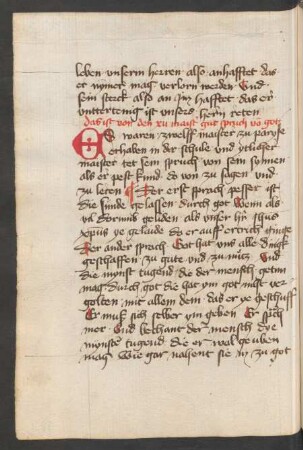 leben unserm herren also anhafftet das
er nymer mag verlorn werden Und
sein steck also an Im hafftet das er
unttertenig ist unsers hern reten
das ist von den xii maist gut spruch vo got
ES waren zwelff maister zu paryse
erhaben in der schule und ytlicher
maister tet sein spruch von sein synnen
als er pest kund do von zu sagen und
zu leren Der erst sprach pesser ist
die sunde gelassen durch got Wenn als
vil dorumb geliden als unser her ihesus
xpus ye gelaide do er auff ertrich ginge
Der ander sprach Got hat uns alle dingk
geschaffen zu gute und zu nütz Und
die mynst tugend die der mensch getun
mag durch got die hat ym got nicht ver
golten mit allem dem das er ye geschuff
Er muß sich selber ym geben Er spricht
mer Und bekhant der mensch dye
mynste tugend die er wol geuben
mag Wie gar nahent sie in zu got